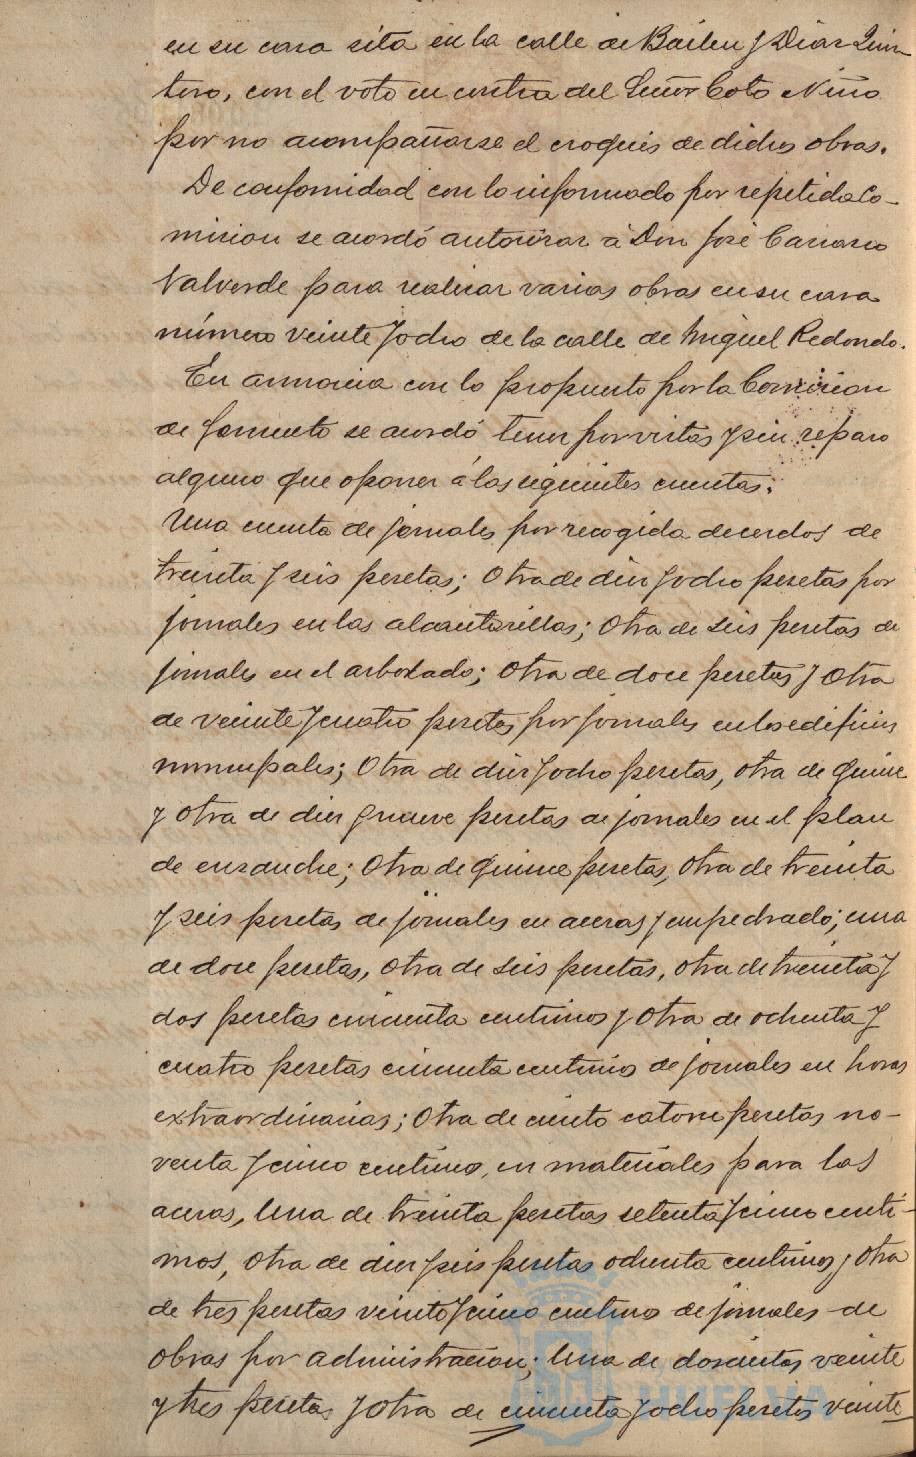 en su casa sita en la calle de Bailen y Diaz Quin-
tero, con el voto en contra del Señor Coto Niño
por no acompañarse el croquis de dichas obras.
De conformidad con lo informado por repetida Co-
mision se acordó autorizar á Don José Carrasco
Valverde para realizar varias obras en su casa
número veinte y ocho de la calle de Miguel Redondo.
En armonia con lo propuesto por la Comision
de fomento se acordó tener por vistas y sin reparo
alguno que oponer á las siguientes cuentas.
Una cuenta de jornales por recogida de cerdos de
treinta y seis pesetas; Otra de diez y ocho pesetas por
jornales en las alcantarillas; Otra de seis pesetas de
jornales en el arbolado; Otra de doce pesetas y Otra
de veinte y cuatro pesetas por jornales en los edificios
municipales; Otra de diez y ocho pesetas, otra de quince
y otra de diez y nueve pesetas de jornales en el plan
de ensanche; Otra de quince pesetas, Otra de treinta
y seis pesetas de jornales en aceras y empedrado; una
de doce pesetas, Otra de seis pesetas, otra de treinta y
dos pesetas cincuenta centimos y Otra de ochenta y
cuatro pesetas cincuenta centimos de jornales en horas
extraordinarias; Otra de ciento catorce pesetas no-
venta y cinco centimos, en materiales para las
aceras, Una de treinta pesetas setenta y cinco centi-
mos, Otra de diez y seis pesetas ochenta centimos y Otra
de tres pesetas veinte y cinco centimos de jornales de
obras por administracion; Una de doscientas veinte
y tres pesetas y Otra de cincuenta y ocho pesetas veinte
HUELVA